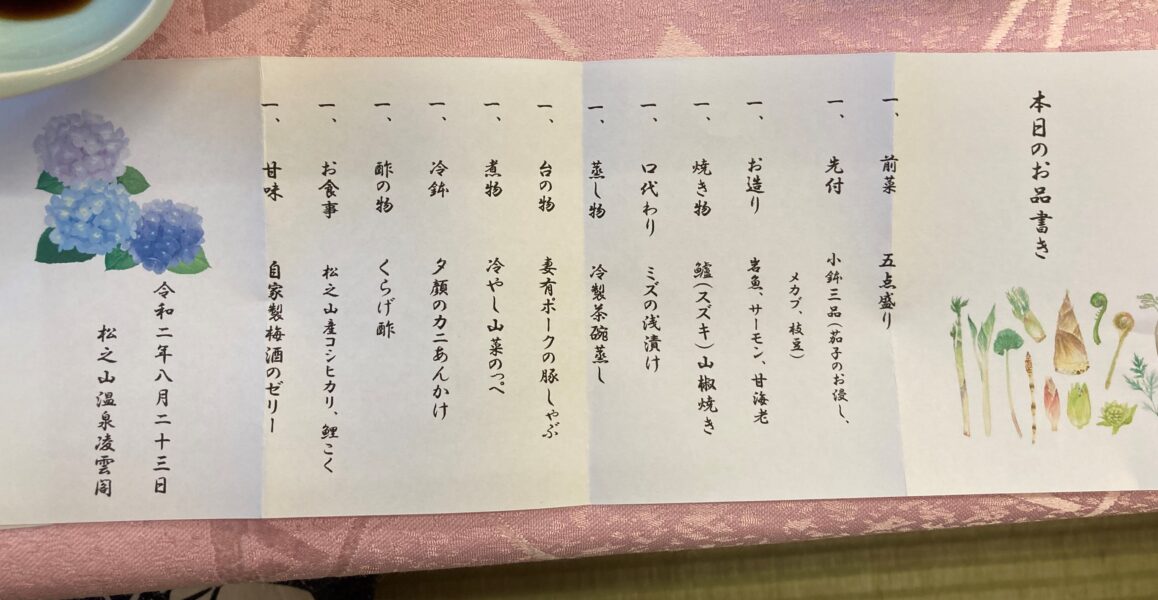 本日のお品書き
一、 前菜 五点盛り
一、 先付 小鉢三品(茄子のお浸し、
メカブ、枝豆)
一、 お造り 岩魚、サーモン、甘海老
一、 焼き物 鱸(スズキ)山椒焼き
一、 口代わり ミズの浅漬け
一、 蒸し物 冷製茶碗蒸し
一、 台の物 妻有ポークの豚しゃぶ
一、 煮物 冷やし山菜のっぺ
一、 冷鉢 夕顔のカニあんかけ
一、 酢の物 くらげ酢
一、 お食事 松之山産コシヒカリ、鯉こく
一、 甘味 自家製梅酒のゼリー
令和二年八月二十三日
松之山温泉凌雲閣